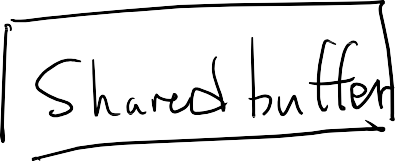 Shared buffer